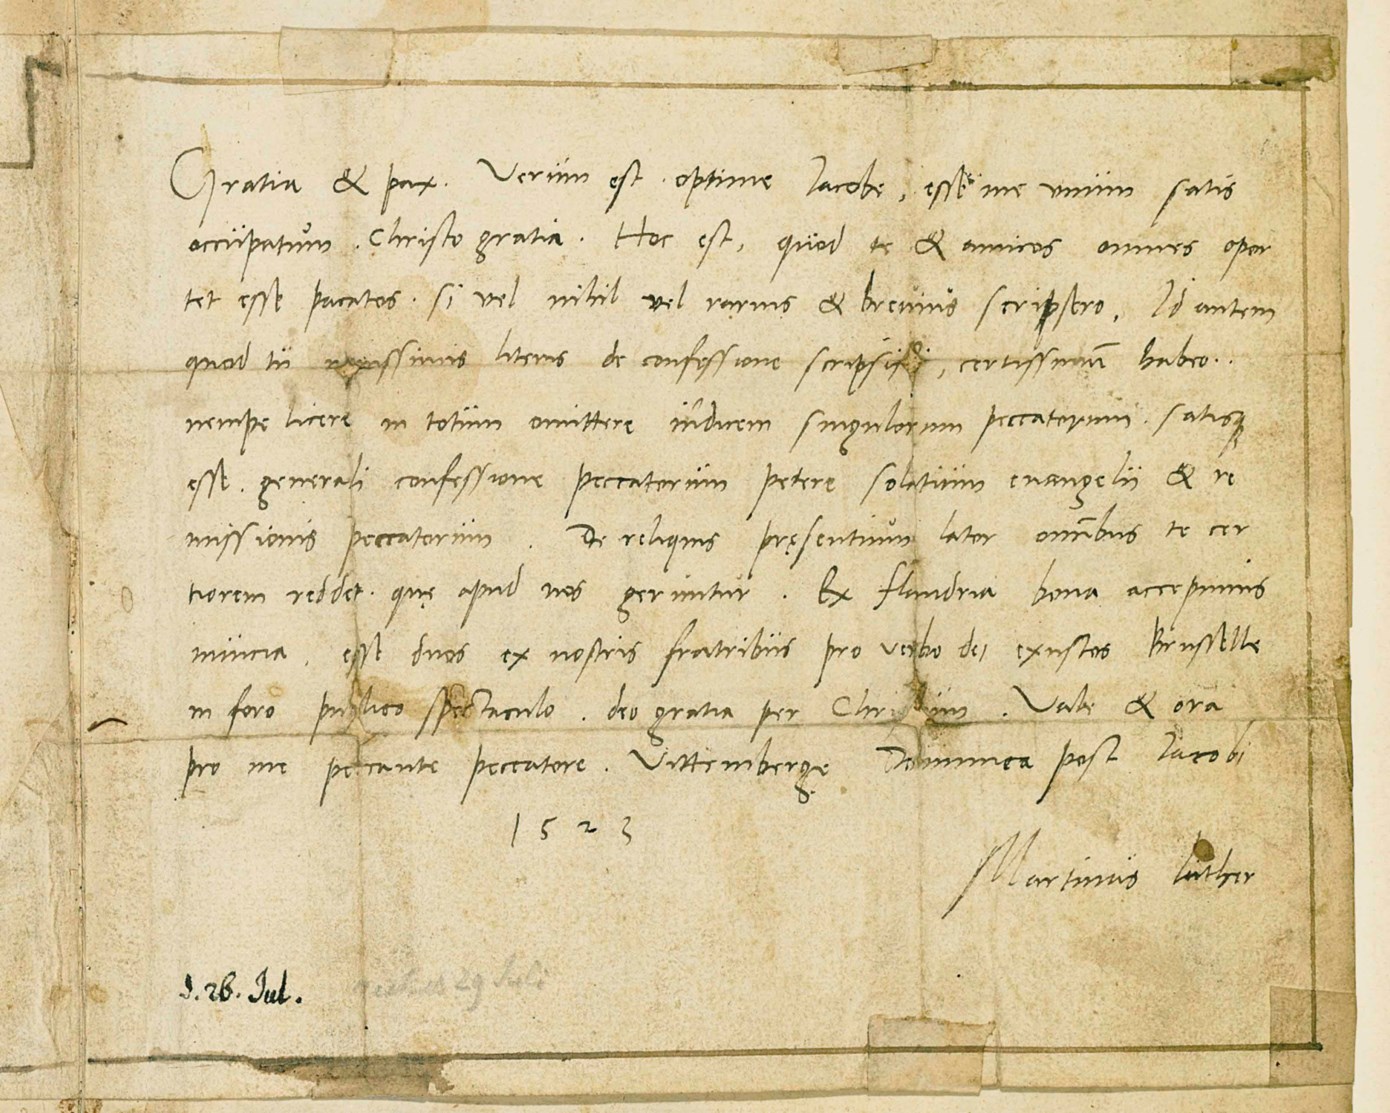 Gratia & pax. Verum est optime Iacobe, esse me unum satis
occupatum Christo gratia. Hoc est, quod te & amicos omnes opor
tet esse pacatos. si vel nihil vel rarius & brevius scripsero, Id autem
quod tu literis de confessione scripsisti, certissimum habeo..
nempe licere in totum omittere indicem singulorum peccatorum. satisque
esse. generali confessione peccatorum petere solatium evangelii & re
missionis peccatorum. De reliquis pręsentium lator omnibus te cer
tiorem reddet. quę apud nos geruntur. Ex flandria bona accepimus
nuncia, esse duos ex nostris fratribus pro verbo dei exustos Brusselle
in foro publico spectaculo. deo gratia per Christum. Vale & ora
pro me peccante peccatore. Vittembergę Dominica post Iacobi
1523
Martinus Luther
d. 26. Jul.
29 Juli